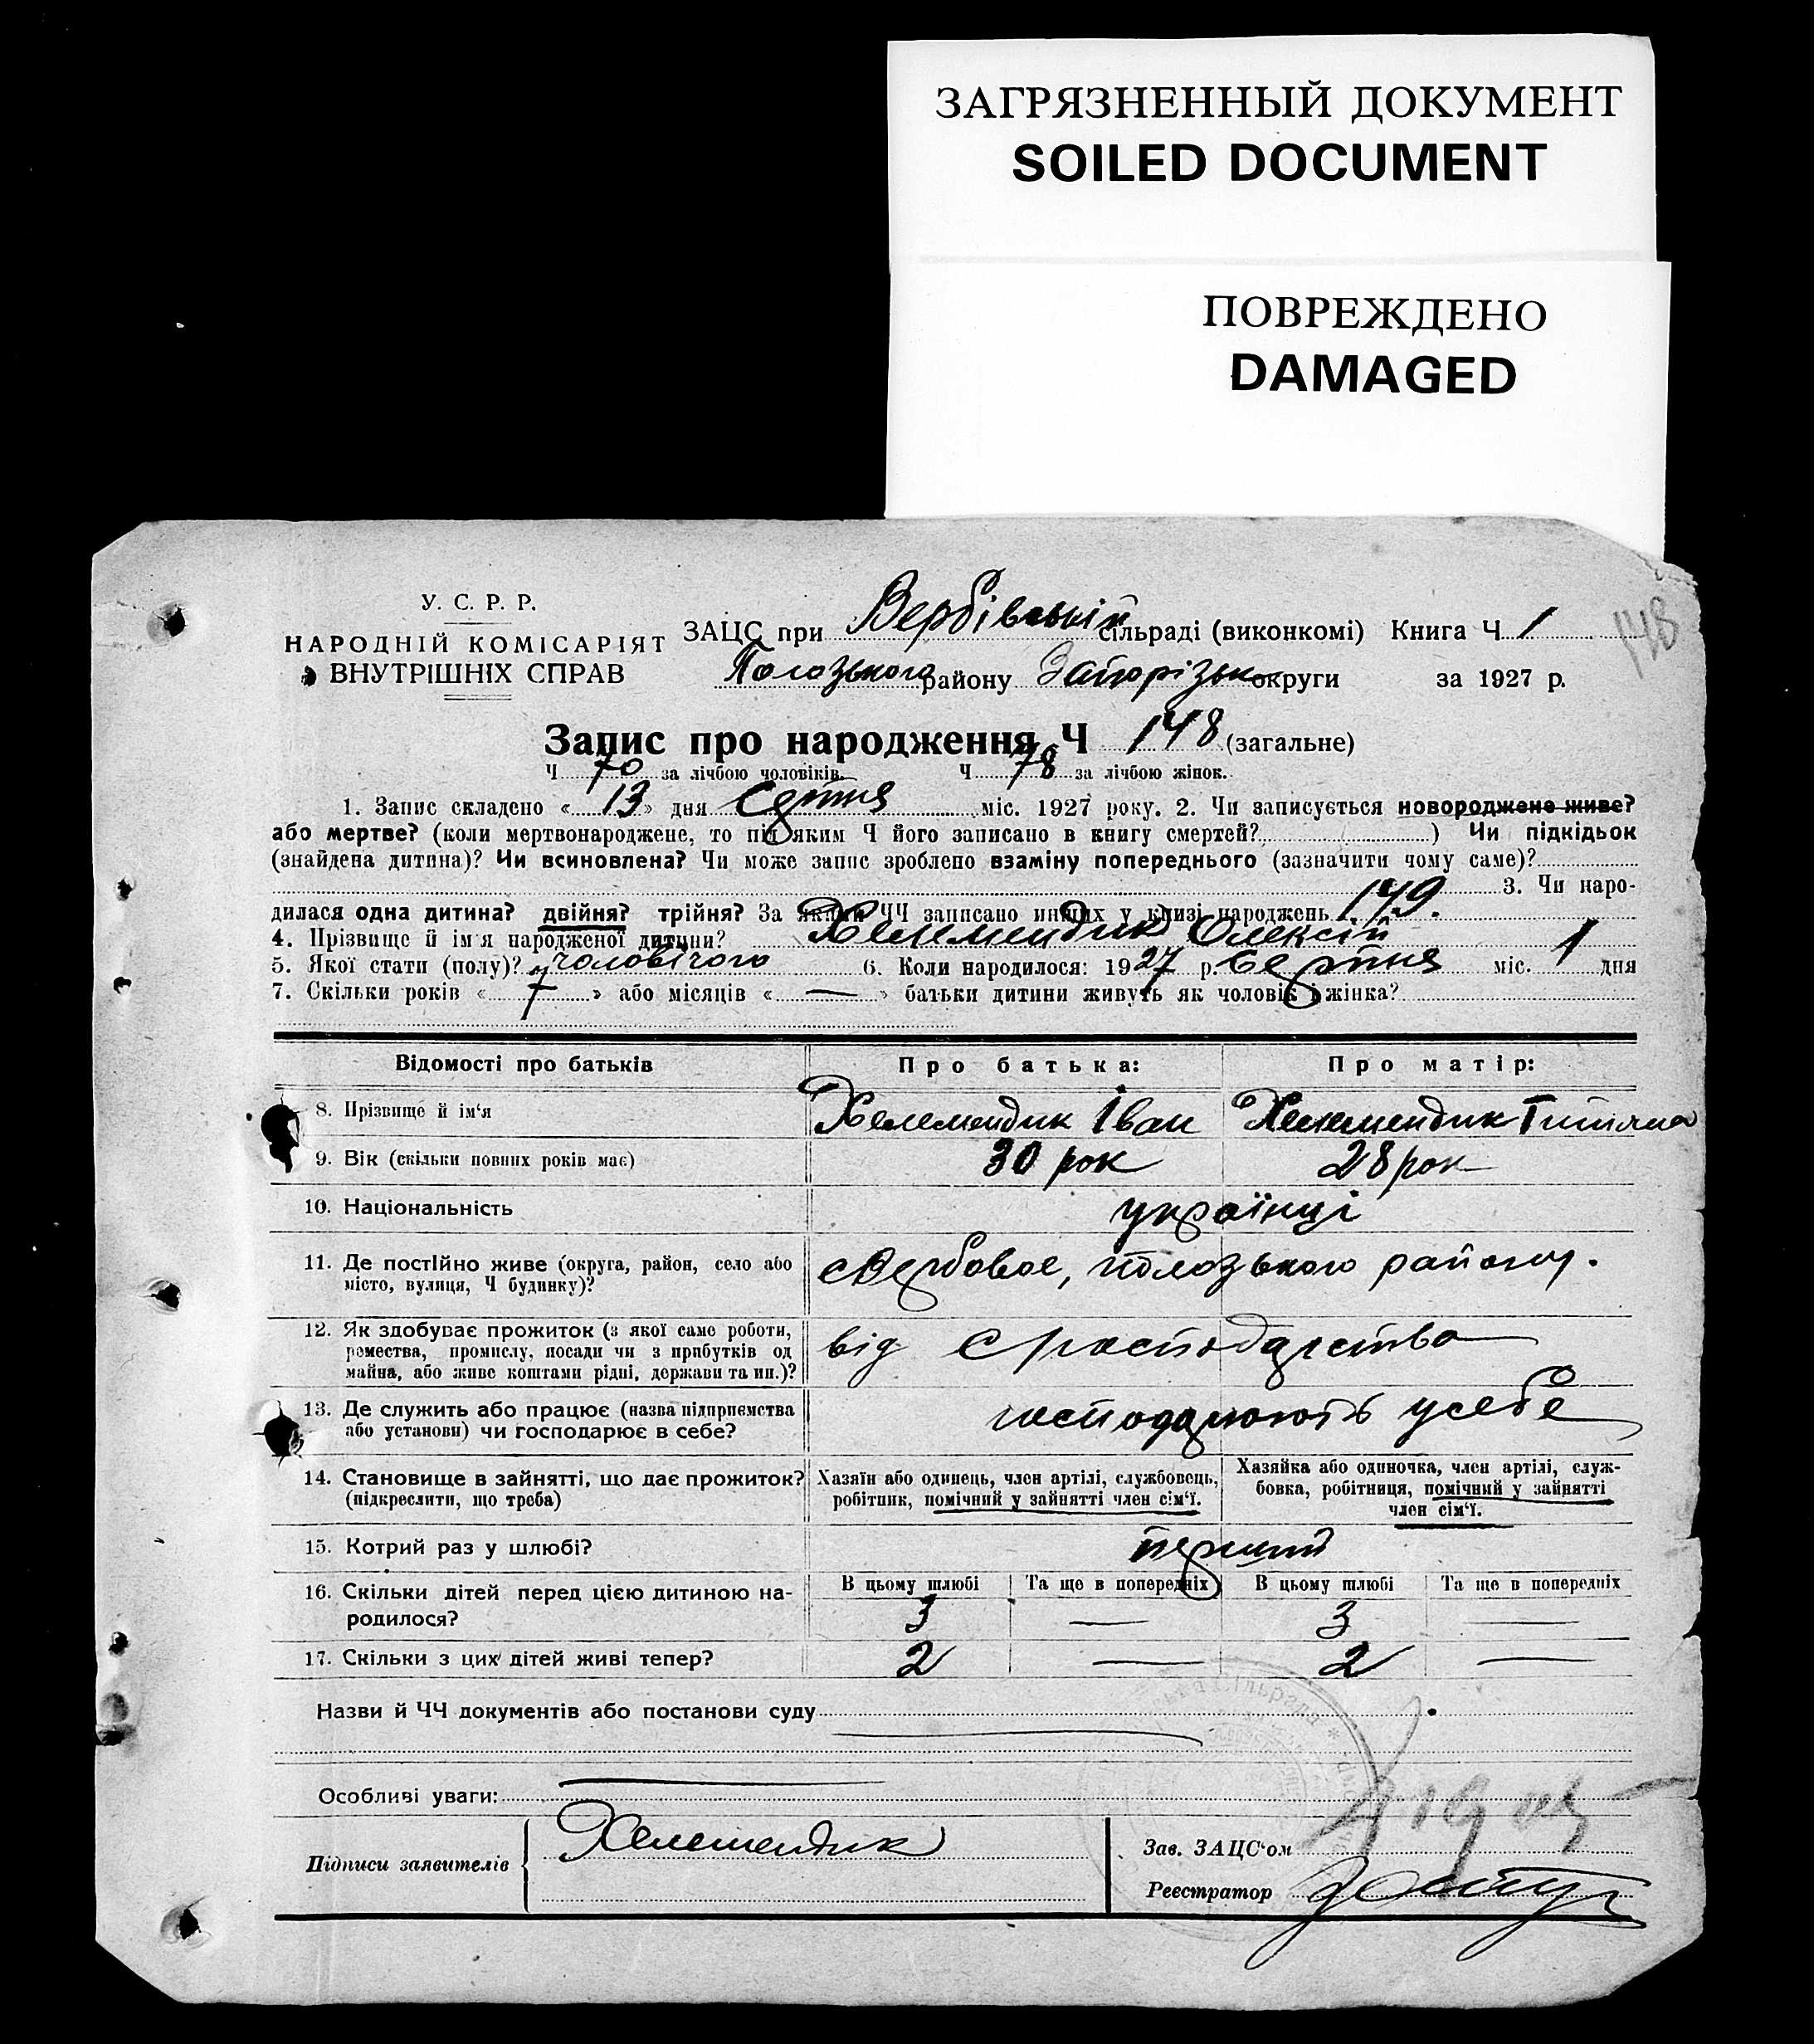 ЗАГРЯЗНЕННЫЙ ДОКУМЕНТ
SOILED DOCUMENT
ПОВРЕЖДЕНО
DAMAGED
148
У. С. Р. Р.
НАРОДНІЙ КОМІСАРІЯТ
ВНУТРІШНІХ СПРАВ
ЗАЦС при Вербівській сільраді (виконкомі) Книга Ч 1
Полозького району Запорізьк округи за 1927 р.
Запис про народження Ч 148 (загальне)
Ч 70 за лічбою чоловіків. Ч 78 за лічбою жінок.
1. Запис складено « 13 » дня Серпня міс. 1927 року. 2. Чи записується новороджене живе?
або мертве? (коли мертвонароджене, то під яким Ч його записано в книгу смертей? ) Чи підкідьок
(знайдена дитина)? Чи всиновлена? Чи може запис зроблено взаміну попереднього (зазначити чому саме)?
3. Чи наро-
дилася одна дитина? двійня? трійня? За якими ЧЧ записано инших у книзі народжень 149.
4. Прізвище й ім'я народженої дитини? Хелемендик Олексій
5. Якої стати (полу)? чоловічого 6. Коли народилося: 1927 р. Серпня міс. 1 дня
7. Скільки років « 7 » або місяців « — » батьки дитини живуть як чоловік і жінка?
Відомості про батьків Про батька: Про матір:
8. Прізвище й ім'я Хелемендик Іван Хелемендик Титяна
9. Вік (скільки повних років має) 30 рок 28 рок
10. Національність українці
11. Де постійно живе (округа, район, село або
місто, вулиця, Ч будинку)? с Вербовое, Полозького району.
12. Як здобуває прожиток (з якої саме роботи,
ремества, промислу, посади чи з прибутків од
майна, або живе коштами рідні, держави та ин.)? від
13. Де служить або працює (назва підприємства
або установи) чи господарює в себе? господарюють усебе
14. Становище в зайнятті, що дає прожиток?
(підкреслити, що треба)
Хазяїн або одинець, член артілі, службовець,
робітник, помічний у зайнятті член сім'ї.
Хазяйка або одиночка, член артілі, служ-
бовка, робітниця, помічний у зайнятті
член сім'ї.
15. Котрий раз у шлюбі? первий
16. Скільки дітей перед цією дитиною на-
родилося?
В цьому шлюбі Та ще в попередніх В цьому шлюбі Та ще в попередніх
3 — 3 —
17. Скільки з цих дітей живі тепер? 2 — 2 —
Назви й ЧЧ документів або постанови суду
Особливі уваги:
Підписи заявителів Хелемендик
Зав. ЗАЦС'ом
Реєстратор